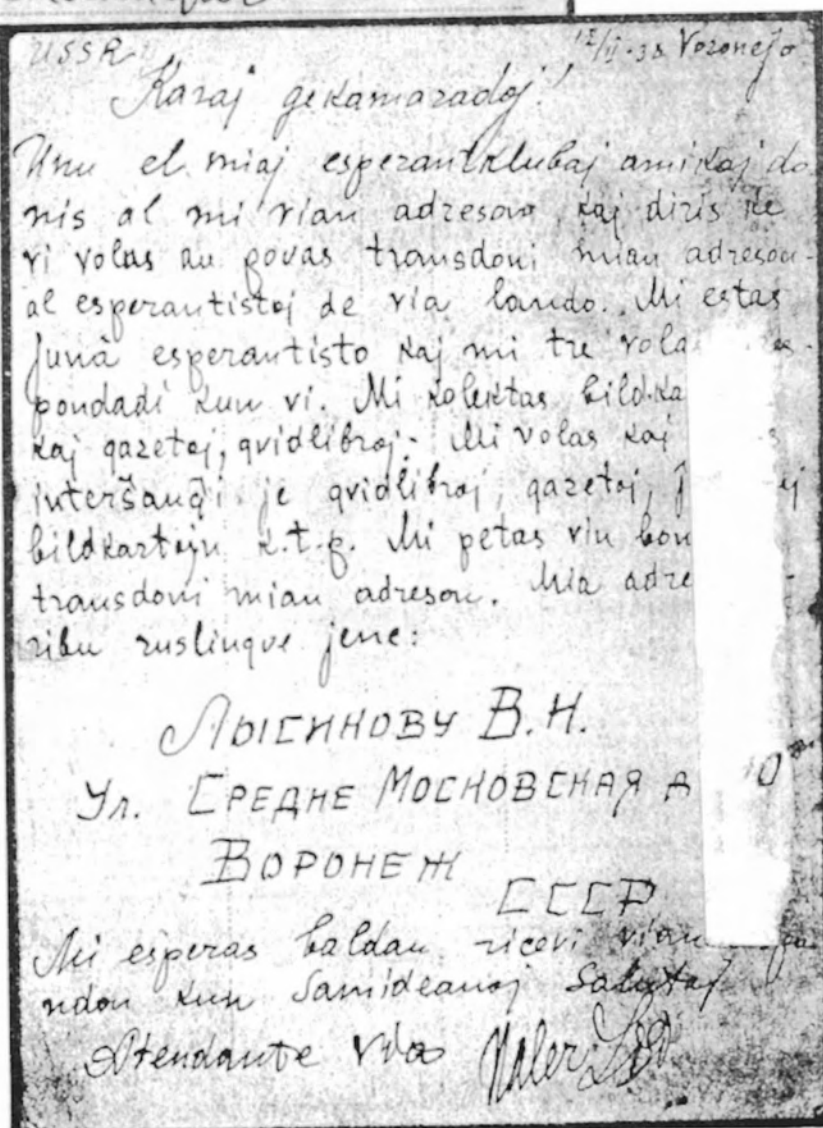 USSR 12/II-38 Voronejo
Karaj gekamaradoj!
Unu el miaj esperantklubaj amikoj do
nis al mi vian adreson kaj diris ke
vi volas au povas transdoni mian adreson
al esperantistoj de via lando. Mi estas
juna esperantisto kaj mi tre
pondadi kun vi. Mi kolektas
kaj gazetoj, gvidlibroj. Mi volas kaj
interŝanĝi je gvidlibroj, gazetoj,
bildkartojn k.t.p. Mi petas vin
transdoni mian adreson. Mia
ribu ruslingve jene:
Лысикову В.Н.
Ул. Средне Московская д
Воронеж
СССР
Mi esperas baldau ricevi vian
ndon kun Samideanoj Salutoj
Atendante Vin Valer